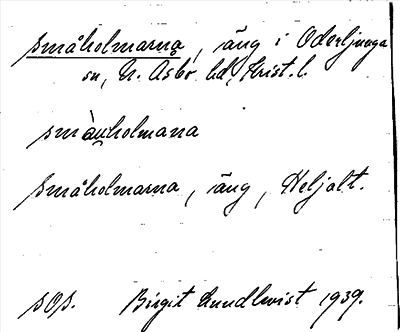 småholmarna, äng i Oderljunga
sn, N. Åsbo hd, Krist. l.
småholmarna, äng, Heljalt.
sOs. Birgit Lundkvist 1939.